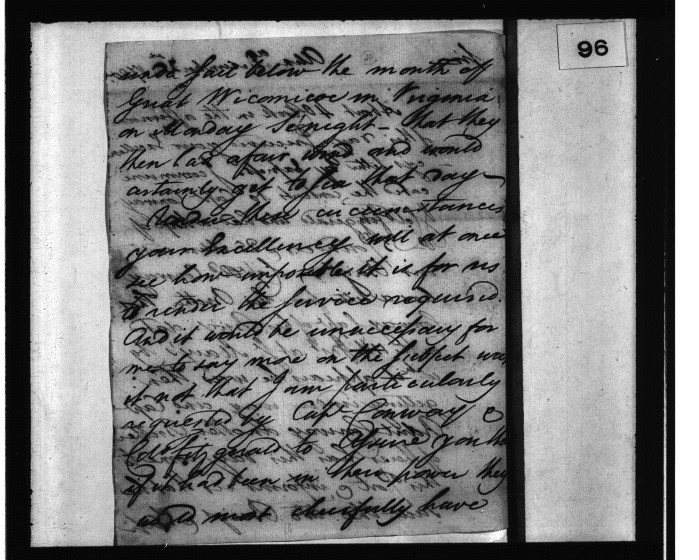 96
under sail below the mouth of
Great Wicomicoe in Virginia
on Monday Senight - that they
then had a fair wind and would
certainly get to sea that day -
Under these circumstances
your Excellency will at once
see how impossible it is for us
to render the service required.
And it would be unnecessary for
me to say more on the subject was
it not that I am particularly
requested by Capt Conway &
Col Fitzgerald to assure you that
if it had been in there power they
would most chearfully have